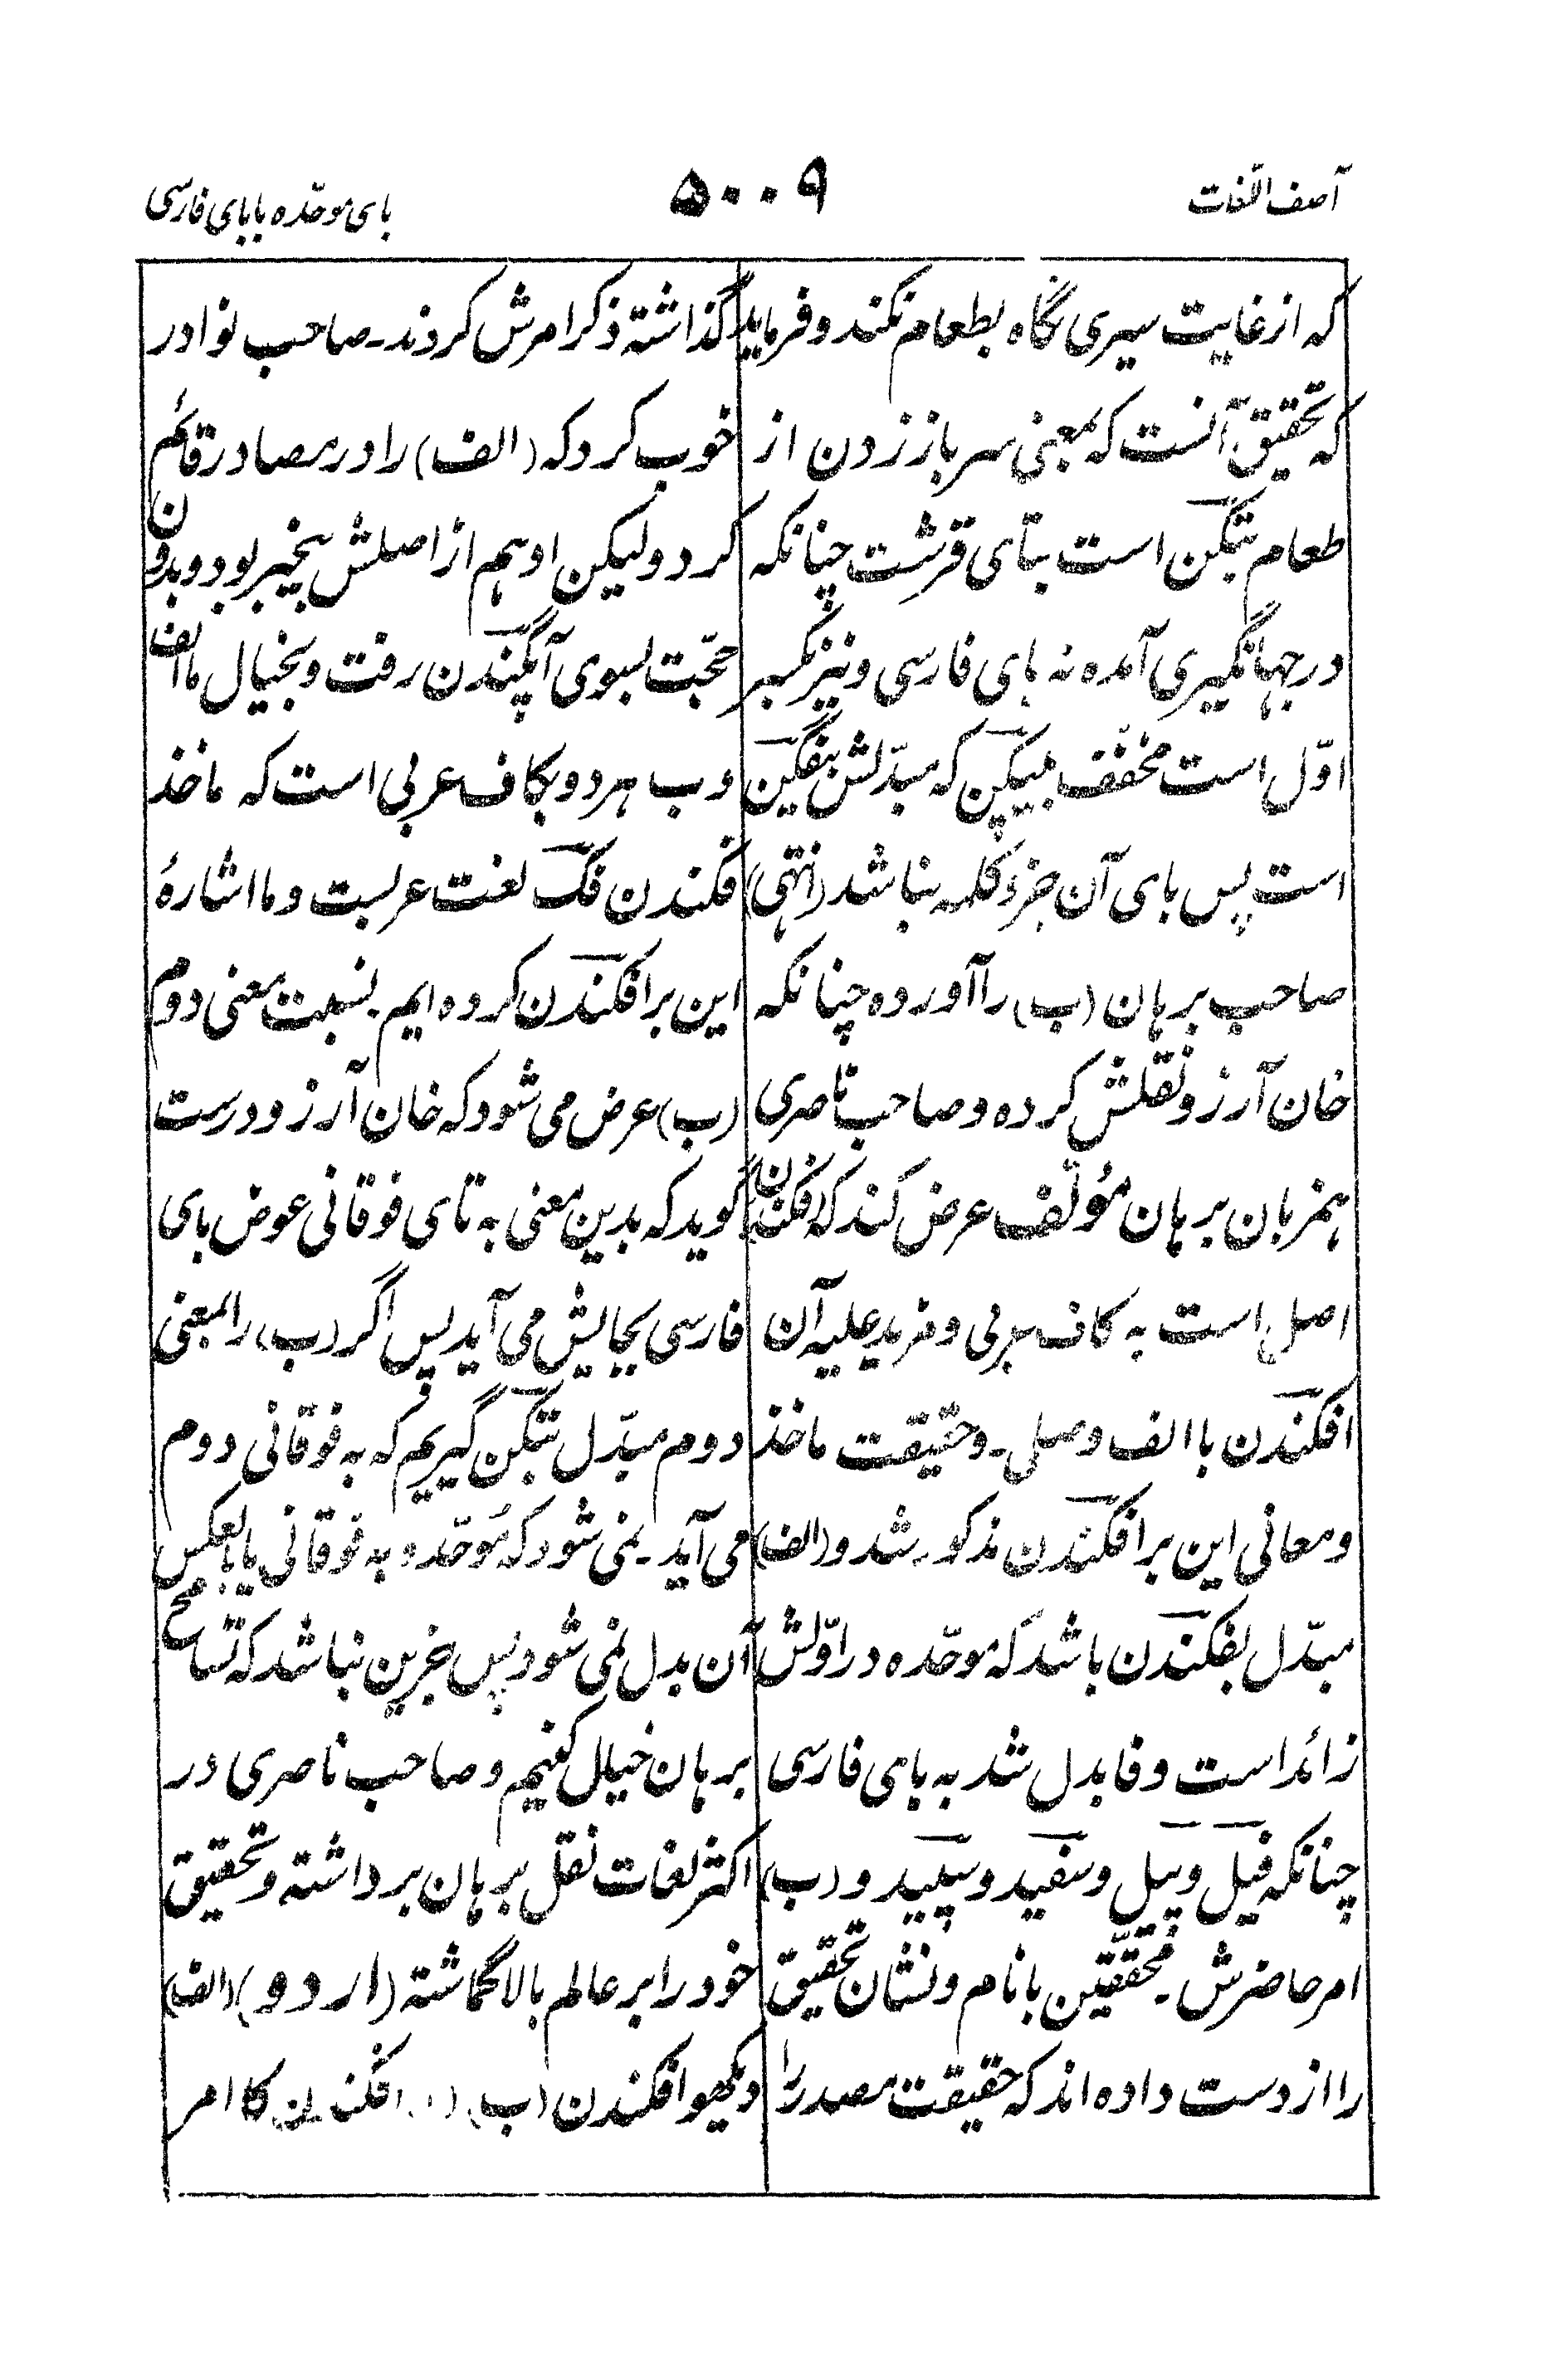 آصف اللّغات
۵۰۰۹
بای موحّده با بای فارسی
که از غایت سیری نگاه بطعام نکند و فرماید
که تحقیق آنست که بمعنی سر باز زدن از
طعام بتکن است بتای قرشت چنانکه
در جهانگیری آمده نه بای فارسی و نیز بکسر
اوّل است مخفّف بیپکن که مبدّلش بیفکن
است پس بای آن جزو کلمه نباشد (انتهی)
صاحب برهان (ب) را آورده چنانکه
خان آرزو نقلش کرده و صاحب ناصری
همزبان برهان مؤلّف عرض کند که فکندن
اصل است به کاف عربی و مزید علیه آن
افکندن با الف وصلی ـ و حقیقت ماخذ
و معانی این بر افکندن مذکور شد و (الف)
مبدّل بفکندن باشد که موحّده در اوّلش
زائد است و فا بدل شد به بای فارسی
چنانکه فیل و پیل و سفید و سپید و (ب)
امر حاضرش ـ محقّقین بانام و نشان تحقیق
را از دست داده اند که حقیقت مصدر را
گذاشته ذکر امرش کردند ـ صاحب نوادر
خوب کرد که (الف) را در مصادر قائم
کرد ولیکن او هم از اصلش بیخبر بود و بدون
حجّت بسوی آپگندن رفت و بخیال ما الف
و ب هر دو بکاف عربی است که ماخذ
فکندن فک لغت عربیست و ما اشارهٔ
این بر افکندن کرده ایم ـ نسبت معنی دوم
(ب) عرض می شود که خان آرزو درست
گوید که بدین معنی به تای فوقانی عوض بای
فارسی بجایش می آید پس اگر (ب) را بمعنی
دوم مبدّل بتکن گیریم که به فوقانی دوم
می آید ـ نمی شود که مُوحّده به فوقانی یا بالعکس
آن بدل نمی شود پس جز این نباشد که تسامح
برهان خیال کنیم و صاحب ناصری در
اکثر لغات نقل برهان برداشته و تحقیق
خود را بر عالم بالا گماشته (اردو) (الف)
دیکھو افکندن (ب) افکندن کا امر